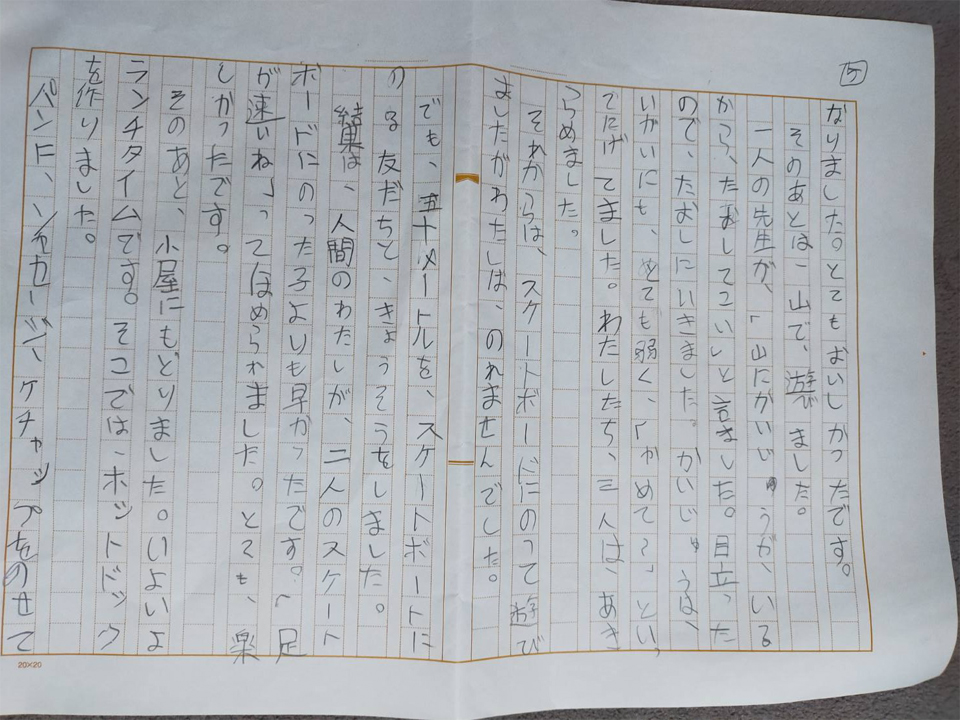 5
なりました。とてもおいしかったです。
そのあとは、山で、遊びました。
一人の先生が、「山にかいじゅうが、いる
から、たおしてこい」と言ました。目立った
ので、たおしにいきました。かいじゅうは、
いがいにも、とても弱く、「やめて〜」といっ
てにげてました。わたしたち、三人は、あき
らめました。
それからは、スケートボードにのって遊び
ましたがわたしは、のれませんでした。
でも、五十メートルを、スケートボートに
のる友だちと、きょうそうをしました。
結果は、人間のわたしが、二人のスケート
ボードにのった子よりも早かったです。「足
が速いね」ってほめられました。とても、楽
しかったです。
そのあと、小屋にもどりました。いよいよ
ランチタイムです。そこでは、ホットドック
を作りました。
パンに、ソーセージ、ケチャップをのせて
20×20